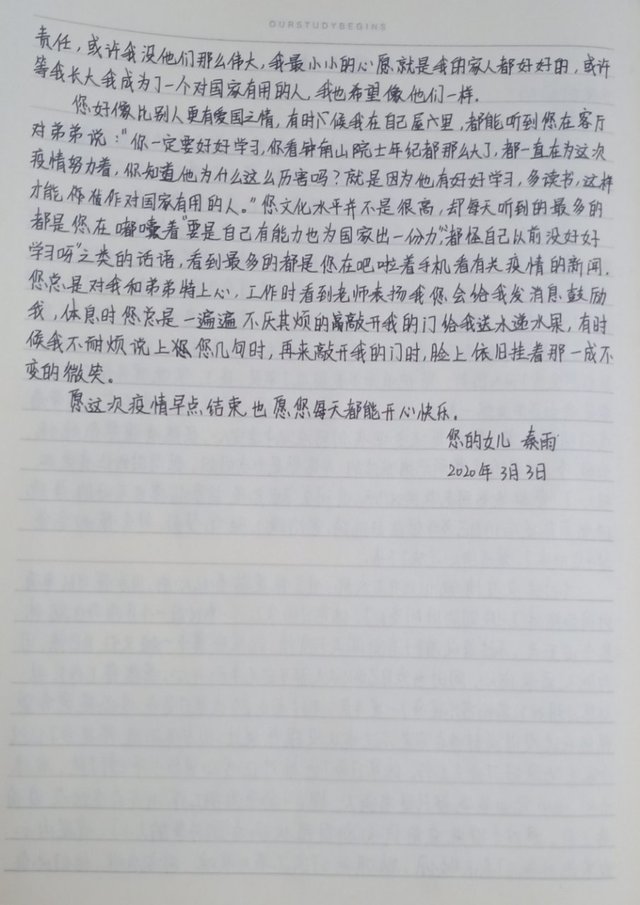 OURSTUDYBEGINS
责任，或许我没他们那么伟大，我最小小的心愿就是我的家人都好好的，或许
等我长大我成为了一个对国家有用的人，我也希望像他们一样。
您好像比别人更有爱国之情，有时候我在自己屋里，都能听到您在客厅
对弟弟说："你一定要好好学习，你看钟南山院士年纪都那么大了，都一直在为这次
疫情努力着，你知道他为什么这么厉害吗？就是因为他有好好学习，多读书，这样
才能作对国家有用的人。"您文化水平并不是很高，却每天听到的最多的
都是您在嘟囔着"要是自己有能力也为国家出一份力""都怪自己以前没好好
学习呀"之类的话语，看到最多的都是您在吧啦着手机看有关疫情的新闻。
您总是对我和弟弟特上心，工作时看到老师表扬我您会给我发消息鼓励
我，休息时您总是一遍遍不厌其烦的敲开我的门给我送水递水果，有时
候我不耐烦说上您几句时，再来敲开我的门时，脸上依旧挂着那一成不
变的微笑。
愿这次疫情早点结束也愿您每天都能开心快乐。
您的女儿 秦雨
2020年3月3日